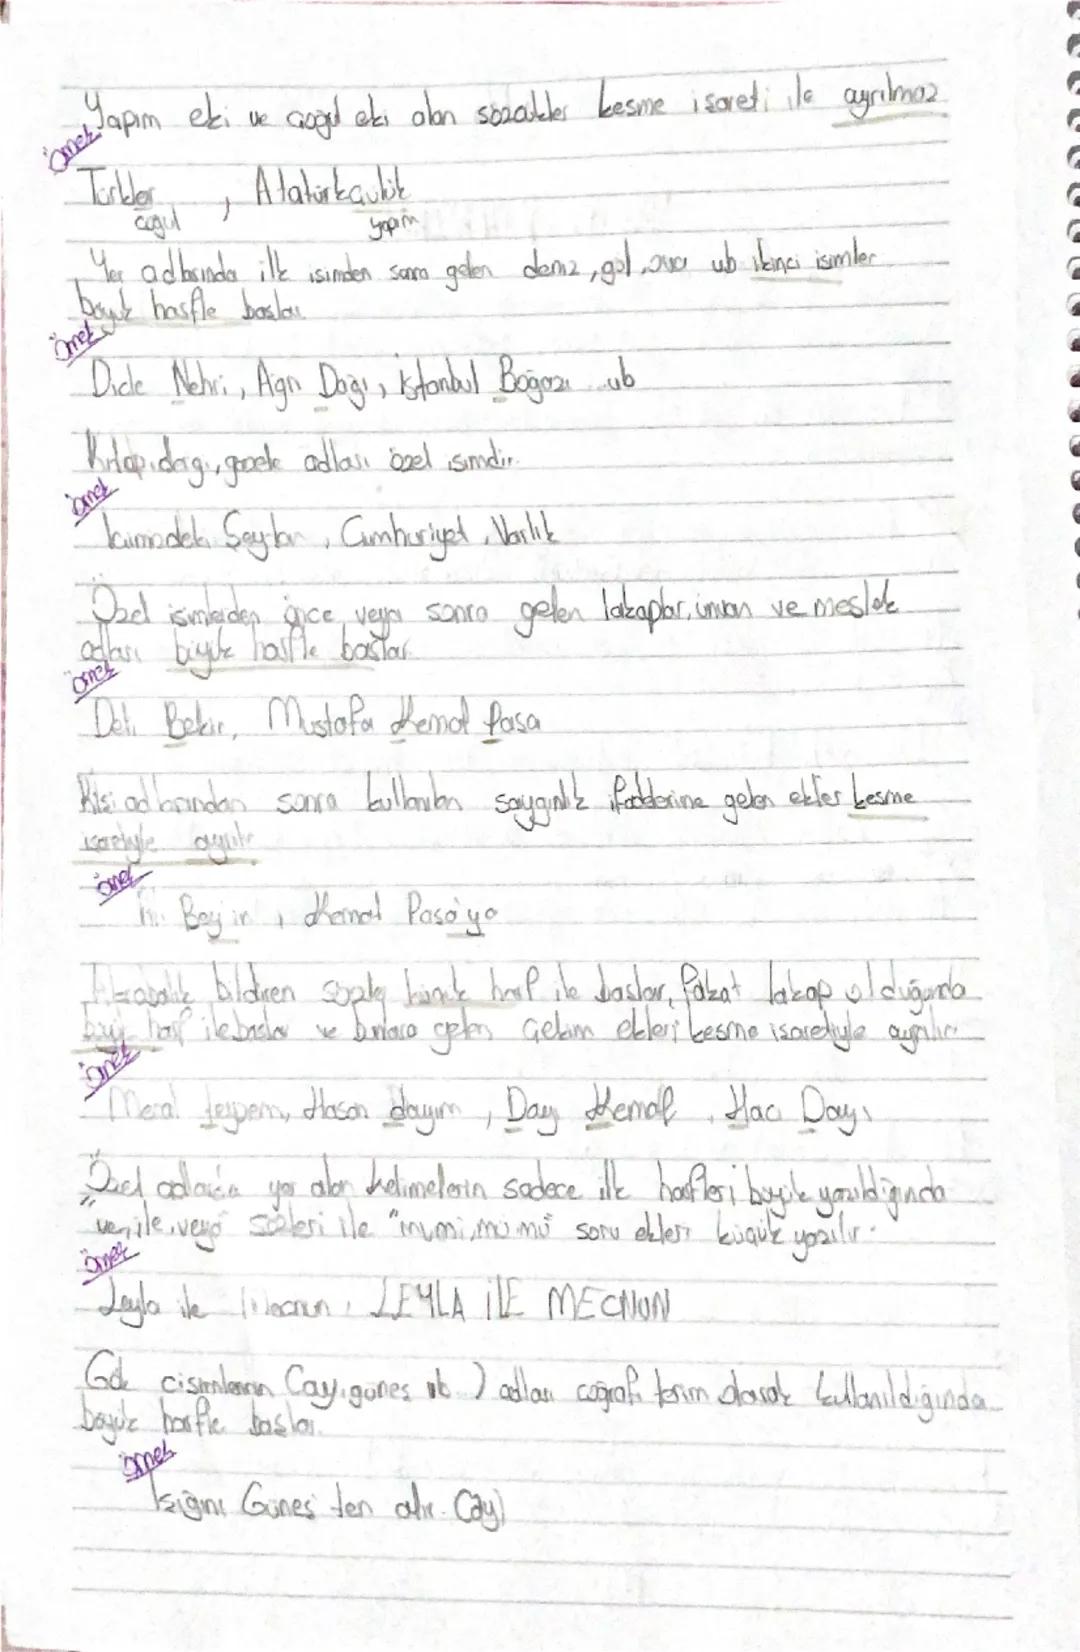 Yapım eki ve çoğul eki alan sözcükler kesme işareti ile ayrılmaz
örnek
Türkler, Atatürkçülük
çoğul yapım
Yer adlarında ilk isimden sonra gelen deniz, göl, ova vb ikinci isimler
büyük harfle başlar
örnek
Dicle Nehri, Ağrı Dağı, İstanbul Boğazı vb
Kitap, dergi, gazete adları özel isimdir.
örnek
İçimizdeki Şeytan, Cumhuriyet, Varlık
Özel isimlerden önce veya sonra gelen lakaplar, ünvan ve meslek
adları büyük harfle başlar.
örnek
Deli Bekir, Mustafa Kemal Paşa
Kişi adlarından sonra kullanılan saygınlık ifadelerine gelen ekler kesme
işaretiyle ayrılır
örnek
Bey'in, Kemal Paşa'ya
Akrabalık bildiren sözler küçük harf ile başlar, fakat lakap olduğunda
büyük harf ile başlar ve bunlara gelen Çekim ekleri kesme işaretiyle ayrılır
örnek
Meral teyzem, Hasan dayım, Dayı Kemal, Hacı Dayı
Özel adlarda yer alan kelimelerin sadece ilk harfleri büyük yazıldığında
"ve, ile, veya" sözleri ile "mı, mi, mu mü" soru ekleri küçük yazılır.
örnek
Leyla ile Mecnun, LEYLA İLE MECNUN
Gök cisimlerinin (ay, güneş vb.) adları coğrafi terim olarak kullanıldığında
büyük harfle başlar.
örnek
Işığını Güneş'ten alır. (ay)